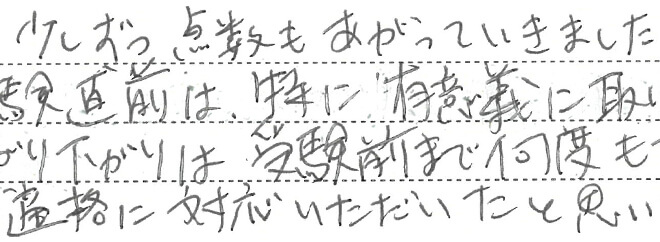 少しずつ点数もあがっていきました
験直前は、特に有意義に取り
がり下がりは受験前まで何度も
適格に対応いただいたと思い